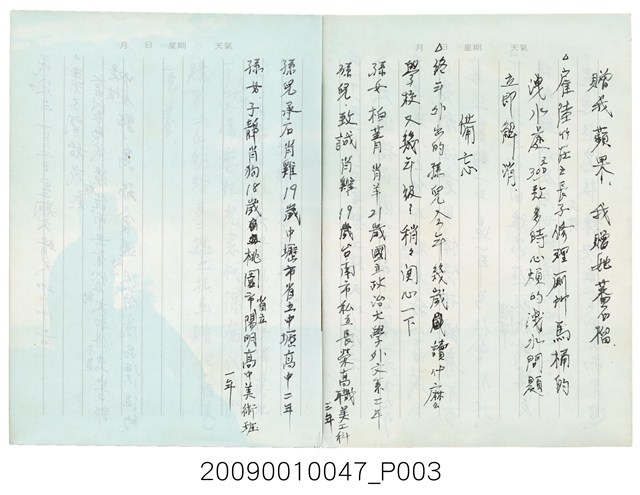 月 日 星期 天氣
贈我蘋果,我贈她蕃石榴.
△雇陸竹莊王長子修理廁所馬桶的
洩水處、300數多時心煩的洩水問題
立即解消
備忘
△終年外出的孫兒今年幾歲讀什麼
學校又幾年級?稍々関心一下
孫女 柏菁 肖羊21歲國立政治大學外文系二年
孫兒.致誠 肖雞19歲台南市私立長榮高職美工科
三年
月 日 星期 天氣
孫兒承石 肖雞19歲中壢市省立中壢高中二年
孫女子靜 肖狗18歲 桃園市省立陽明高中美術班
一年
20090010047_P003